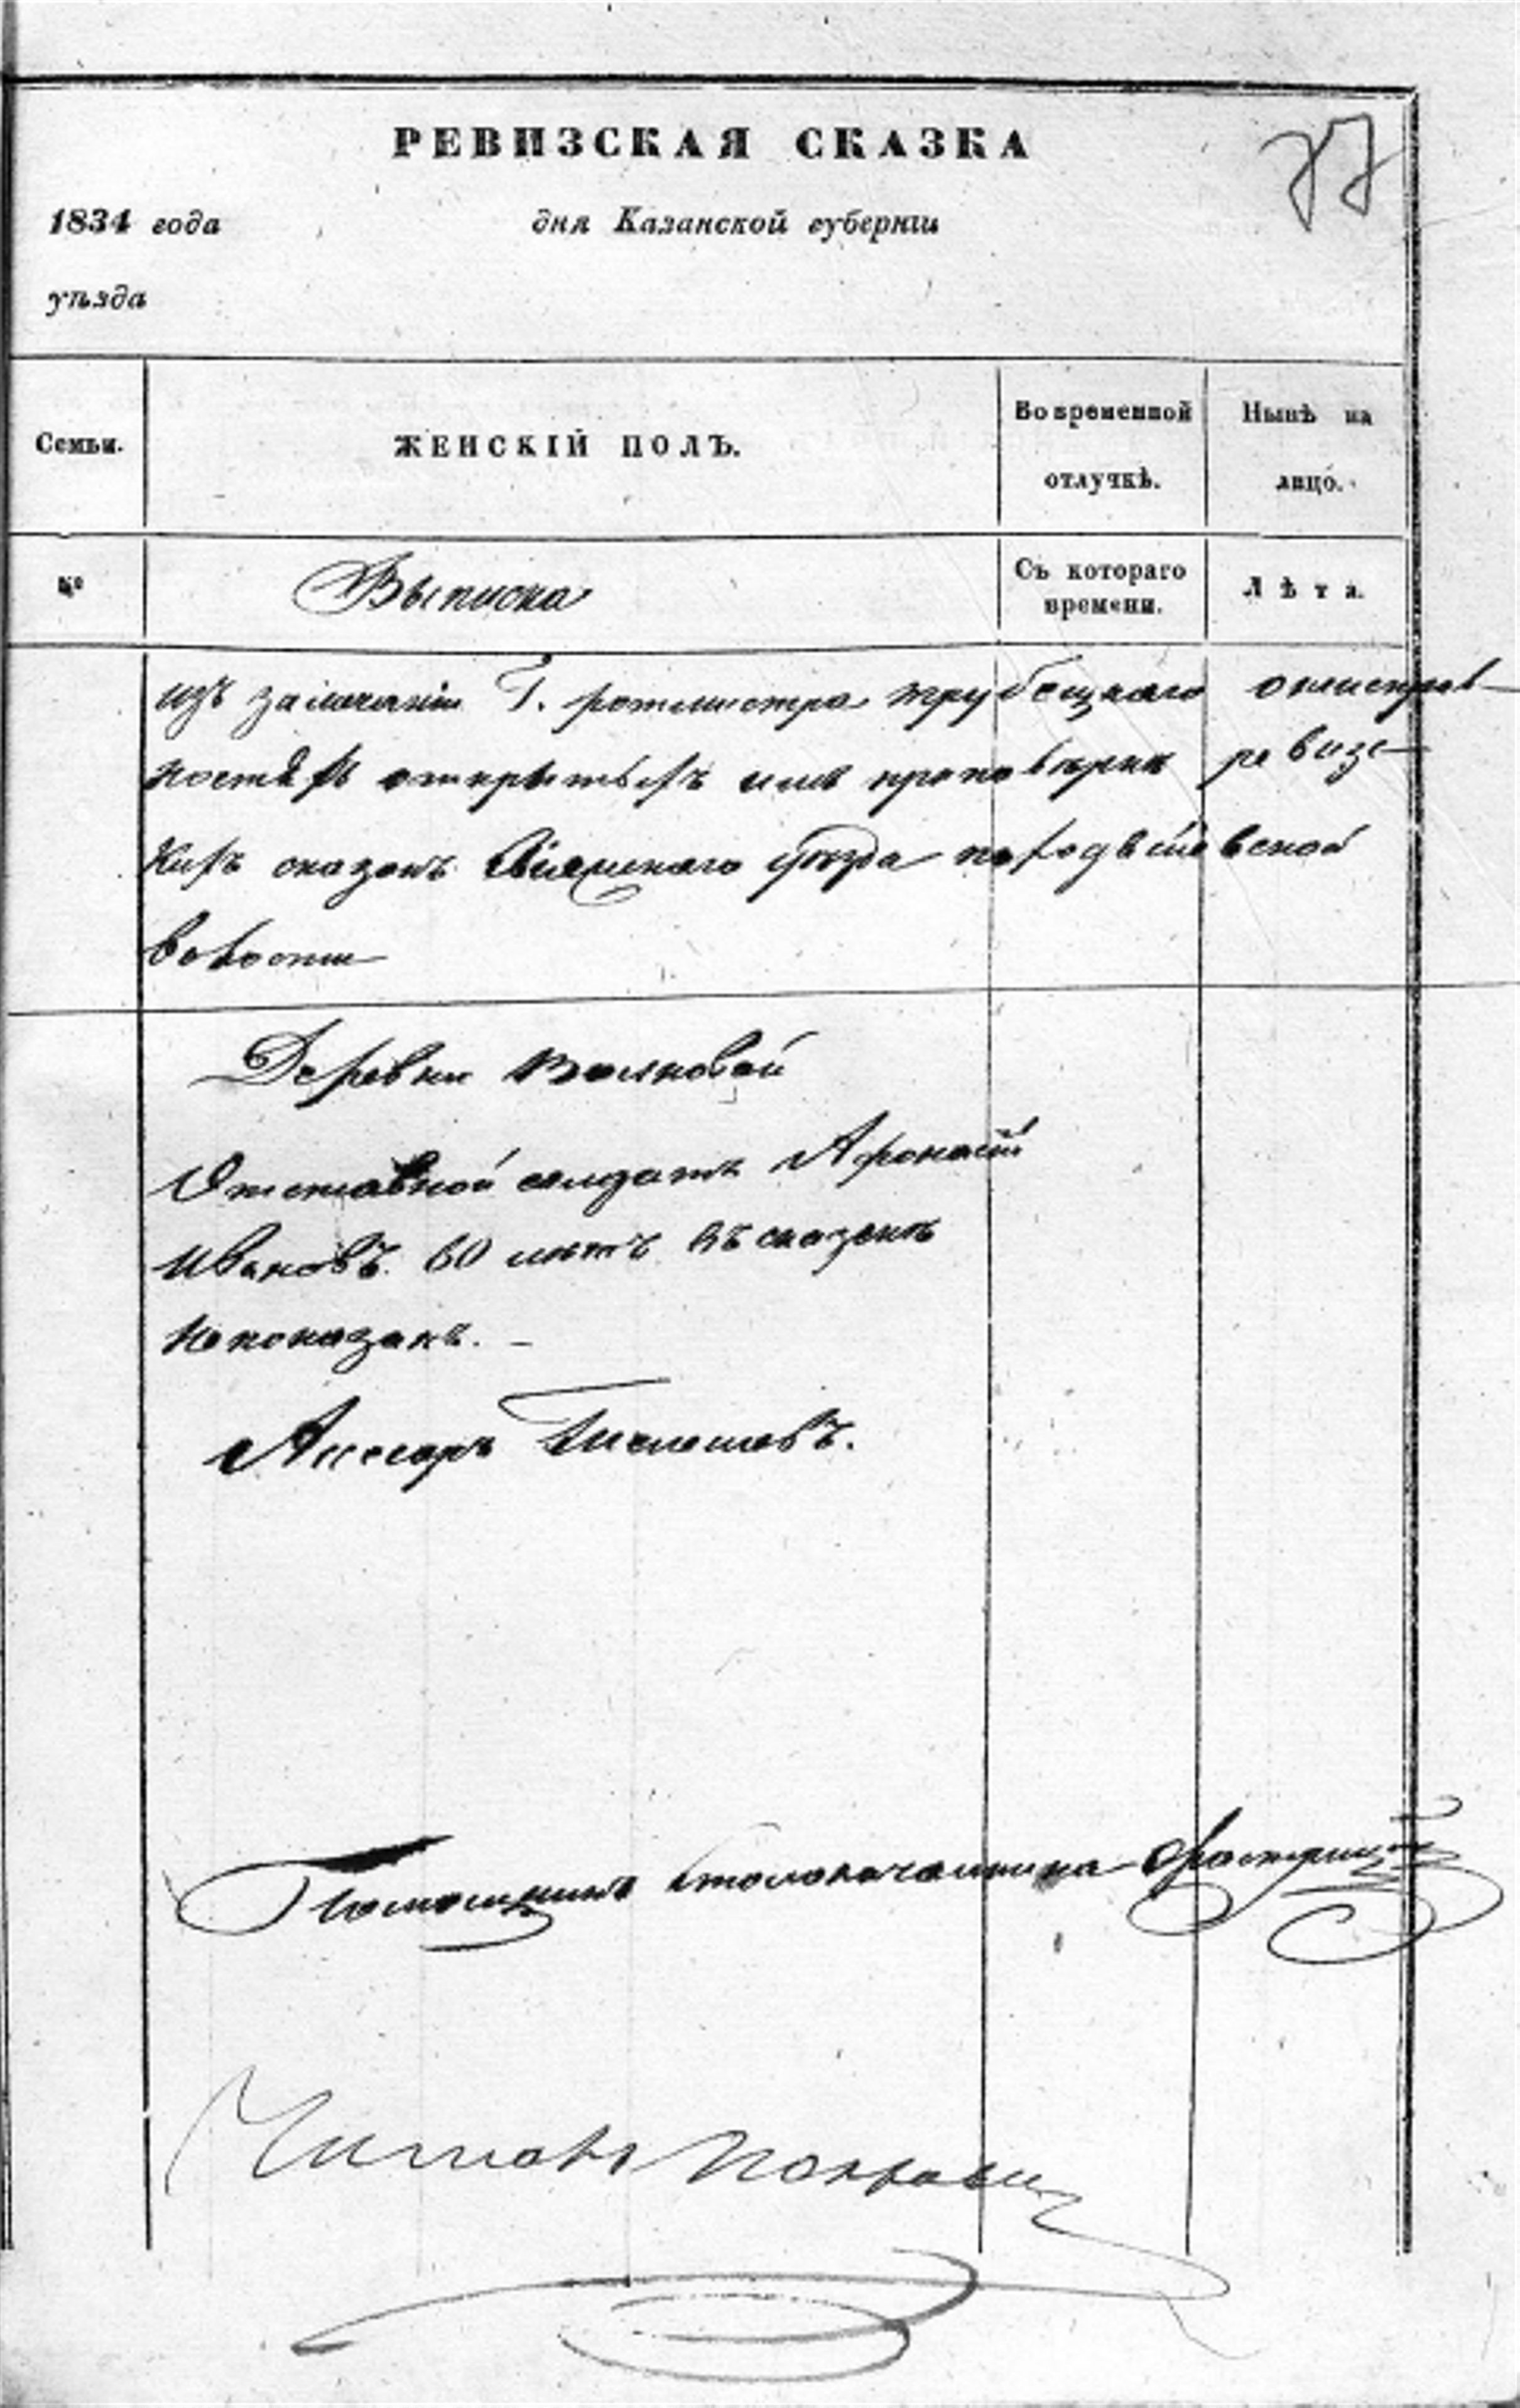 РЕВИЗСКАЯ СКАЗКА
77
1834 года дня Казанской губернiи
уѣзда
Семьи.
ЖЕНСКIЙ ПОЛЪ.
Во временной отлучкѣ.
Нынѣ на лицо.
№
Выписка
Съ котораго времени.
Лѣта.
изъ замечанiи Г. ротмистра Трубецкаго о неисправ-
ностяхъ открытыхъ имъ при поверке ревизс-
кихъ сказокъ Свiяжскаго уѣзда
волости
Деревни Волковой
Отставной солдатъ Афонасiй
Ивановъ 60 летъ въ сказке
не показанъ. —
Асесоръ
Помощникъ Столоначальника
Читалъ